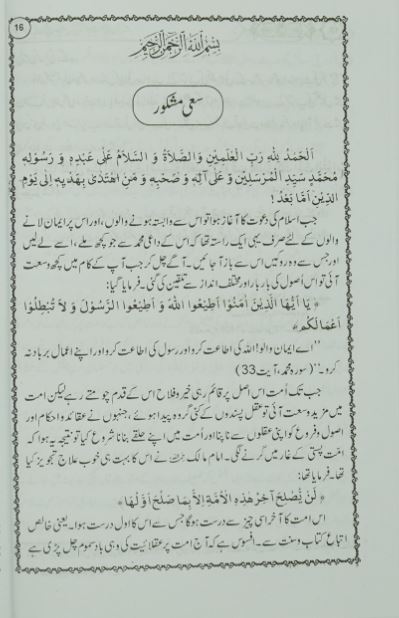 16
بسم الله الرحمن الرحيم
سعیِ مشکور
اَلْحَمْدُ لِلّٰهِ رَبِّ الْعٰلَمِیْنَ وَالصَّلاَةُ وَ السَّلاَمُ عَلٰی عَبْدِهٖ وَ رَسُوْلِهٖ
مُحَمَّدٍ سَیِّدِ الْمُرْسَلِیْنَ وَ عَلٰی آلِهٖ وَ صَحْبِهٖ وَ مَنِ اهْتَدٰی بِهَدْیِهٖ اِلٰی یَوْمِ
الدِّیْنِ اَمَّا بَعْدُ!
جب اسلام کی دعوت کا آغاز ہوا تو اس سے وابستہ ہونے والوں، اور اس پر ایمان لانے
والوں کے لئے صرف یہی ایک راستہ تھا کہ اس کے داعی محمد سے جو کچھ ملے، اسے لے لیں
اور جس سے وہ روکیں اس سے باز آجائیں۔ آگے چل کر جب آپ کے کام میں کچھ وسعت
آئی تو اس اُصول کی بار بار اور مختلف انداز سے تلقین کی گئی۔ فرمایا گیا:
﴿ یَا اَیُّهَا الَّذِیْنَ آمَنُوْا اَطِیْعُوا اللّٰهَ وَ اَطِیْعُوا الرَّسُوْلَ وَ لاَ تُبْطِلُوْا
اَعْمَالَکُمْ ﴾
’’اے ایمان والو! اللہ کی اطاعت کرو اور رسول کی اطاعت کرو اور اپنے اعمال برباد نہ
کرو۔‘‘ (سورہ محمد، آیت 33)
جب تک اُمت اس اصل پر قائم رہی خیر و فلاح اس کے قدم چومتے رہے لیکن امت
میں مزید وسعت آئی تو عقل پسندوں کے کئی گروہ پیدا ہوئے، جنہوں نے عقائد و احکام اور
اصول و فروع کو اپنی عقلوں سے ناپنا اور اُمت میں اپنے حلقے بنانا شروع کیا تو نتیجہ یہ ہوا کہ
امت پستی کے غار میں گرنے لگی۔ امام مالک نے اس کا بہت ہی خوب علاج تجویز کیا
تھا۔ فرمایا تھا:
﴿ لَنْ یَّصْلُحَ آخِرُ هٰذِهِ الْاُمَّةِ اِلاَّ بِمَا صَلُحَ اَوَّلُهَا ﴾
اس امت کا آخر اسی چیز سے درست ہوگا جس سے اس کا اول درست ہوا۔ یعنی خالص
اتباع کتاب و سنت سے۔ افسوس ہے کہ آج امت پر عقلانیت کی وہی بادِ سموم چل پڑی ہے